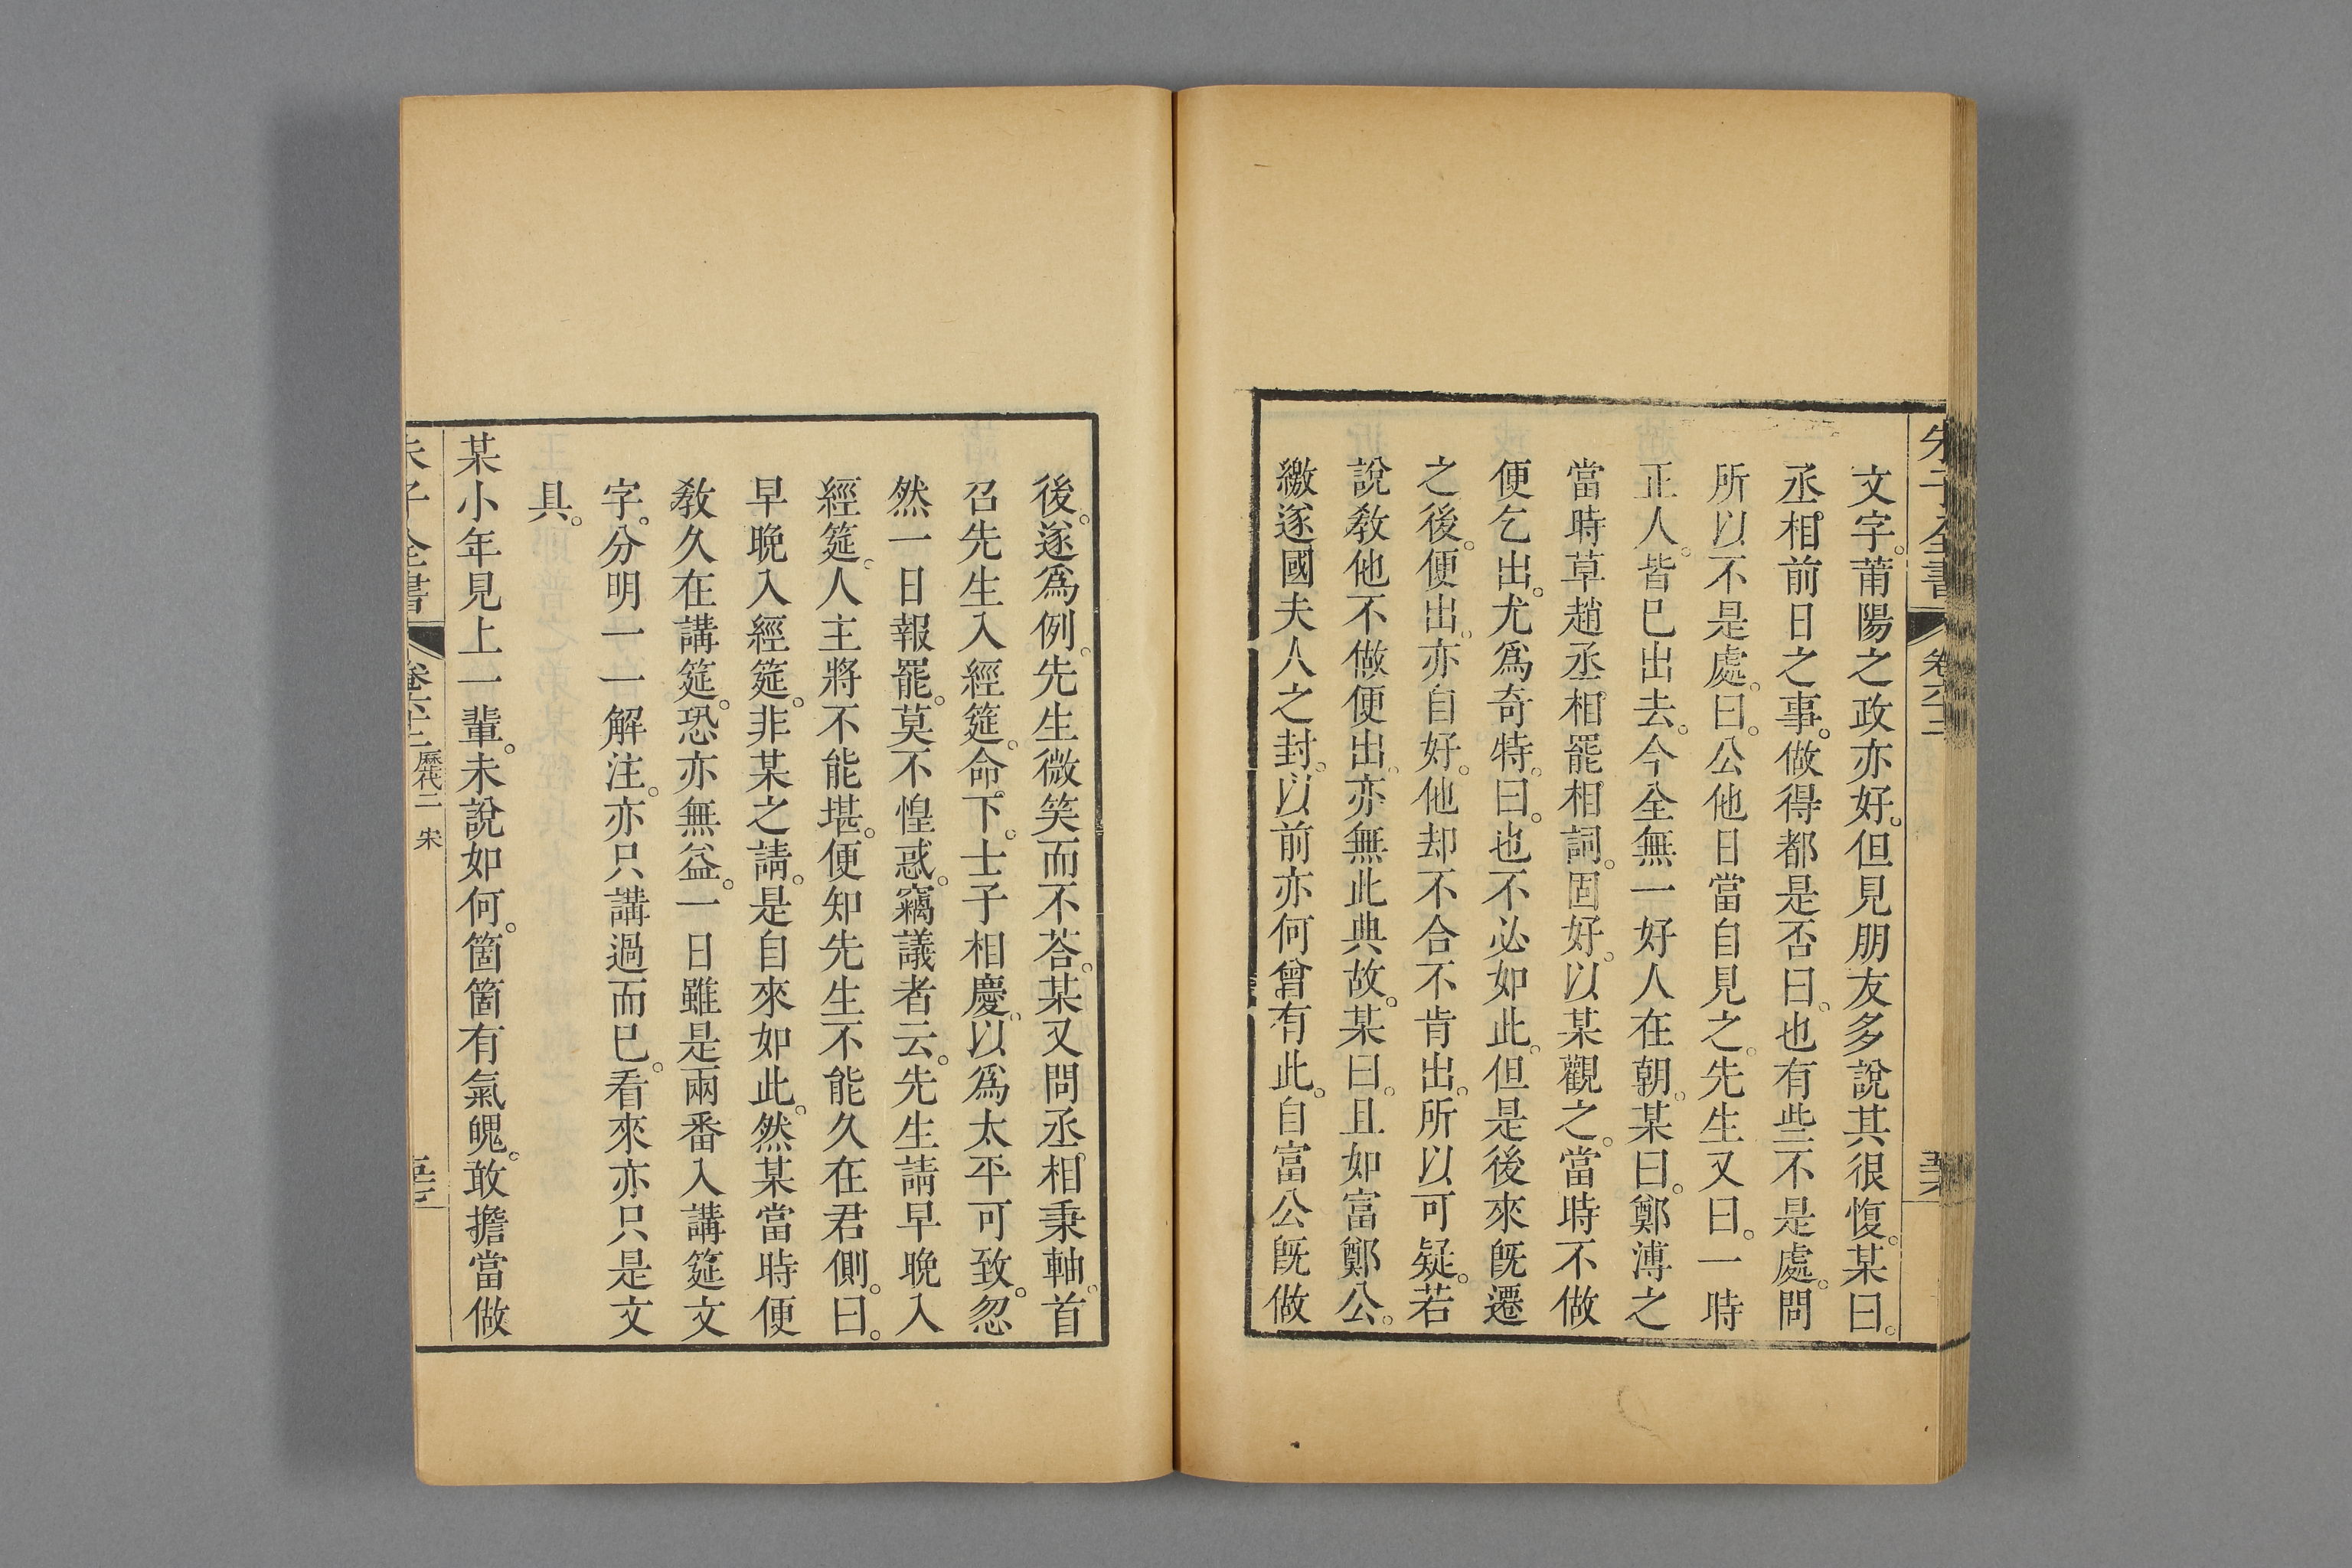 朱子全書 卷六十二
文字。莆陽之政亦好。但見朋友多說其很愎。某曰。
丞相前日之事。做得都是否。曰。也有些不是處。問
所以不是處。曰。公他日當自見之。先生又曰。一時
正人。皆已出去。今全無一好人在朝。某曰。鄭溥之
當時草趙丞相罷相詞。固好。以某觀之。當時不做
便乞出。尤爲奇特。曰。也不必如此。但是後來旣遷
之後。便出。亦自好。他却不合不肯出。所以可疑。若
說敎他不做便出。亦無此典故。某曰。且如富鄭公。
繳遂國夫人之封。以前亦何曾有此。自富公旣做
後。遂爲例。先生微笑而不荅。某又問丞相秉軸。首
召先生入經筵。命下。士子相慶。以爲太平可致。忽
然一日報罷。莫不惶惑。竊議者云。先生請早晚入
經筵。人主將不能堪。便知先生不能久在君側。曰。
早晚入經筵。非某之請。是自來如此。然某當時便
敎久在講筵。恐亦無益。一日雖是兩番入講筵文
字。分明一一解注。亦只講過而已。看來亦只是文
具。
某小年見上一輩。未說如何。箇箇有氣魄。敢擔當做
朱子全書 卷六十二 歷代二 宋